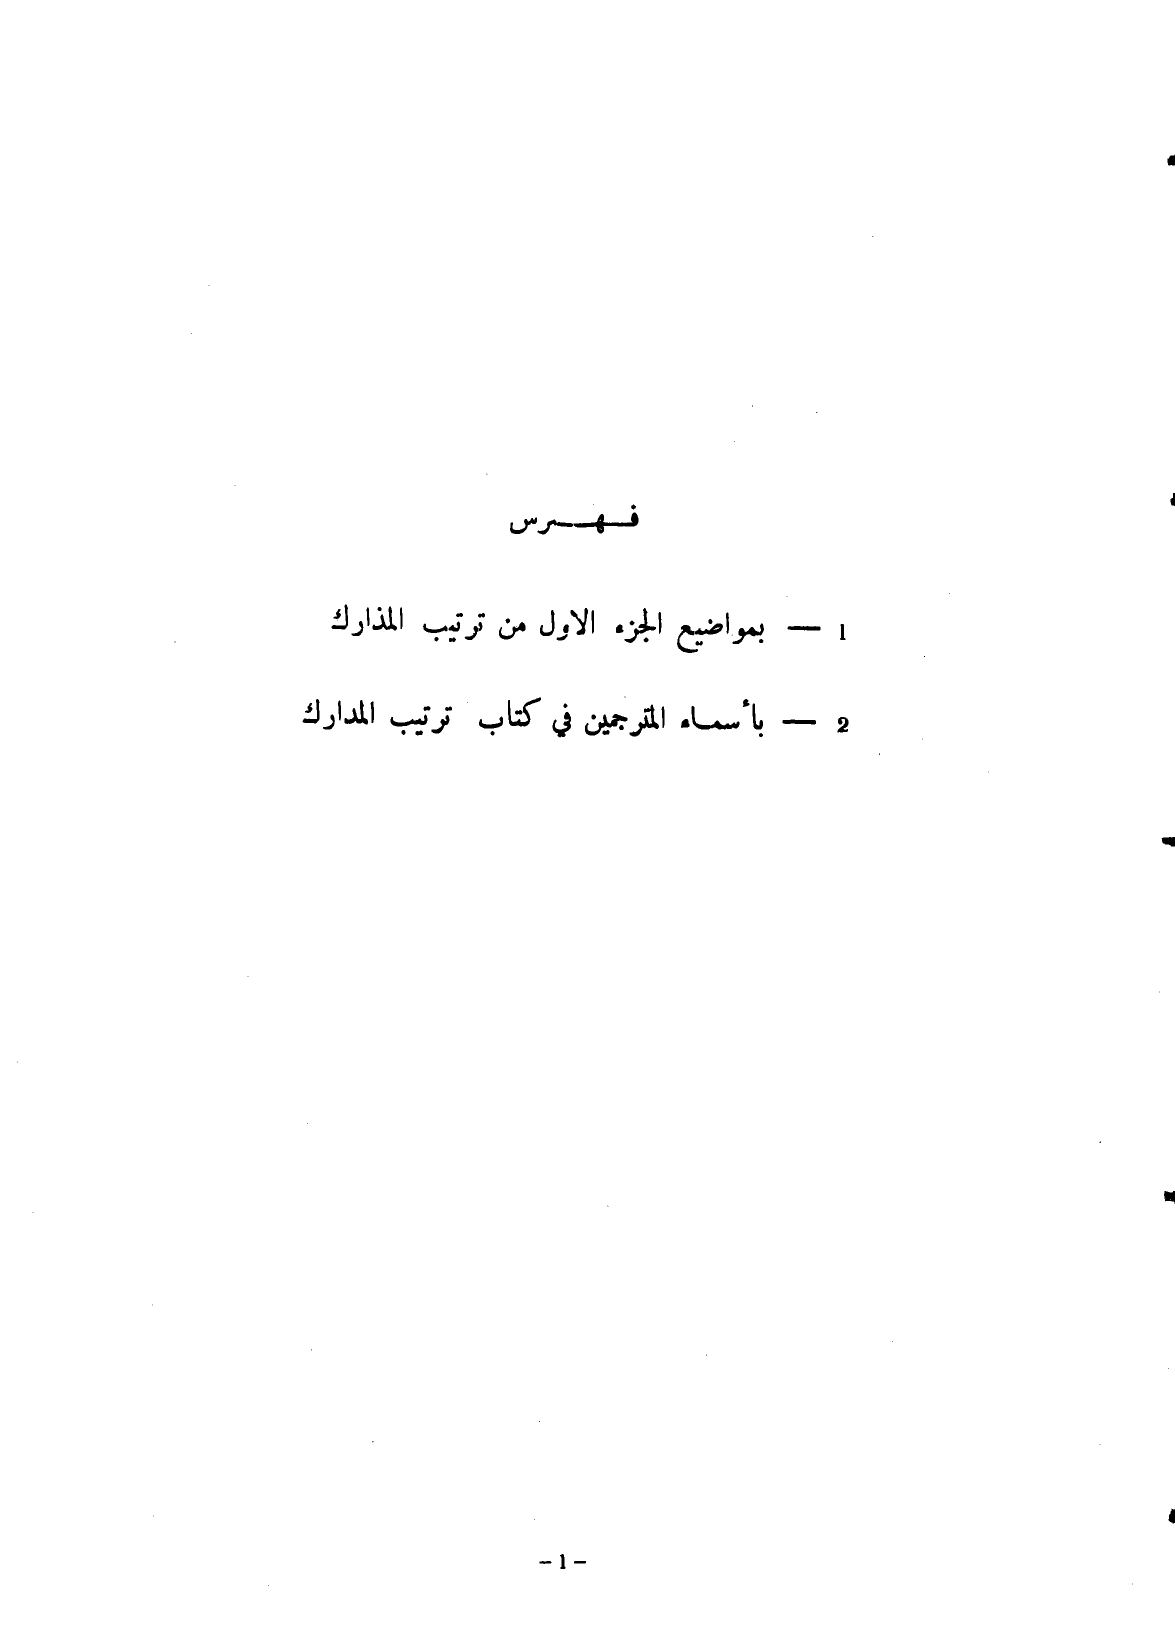 فهرس
1 — بمواضيع الجزء الاول من ترتيب المذارك
2 — بأسماء المترجمين في كتاب ترتيب المدارك
- 1 -